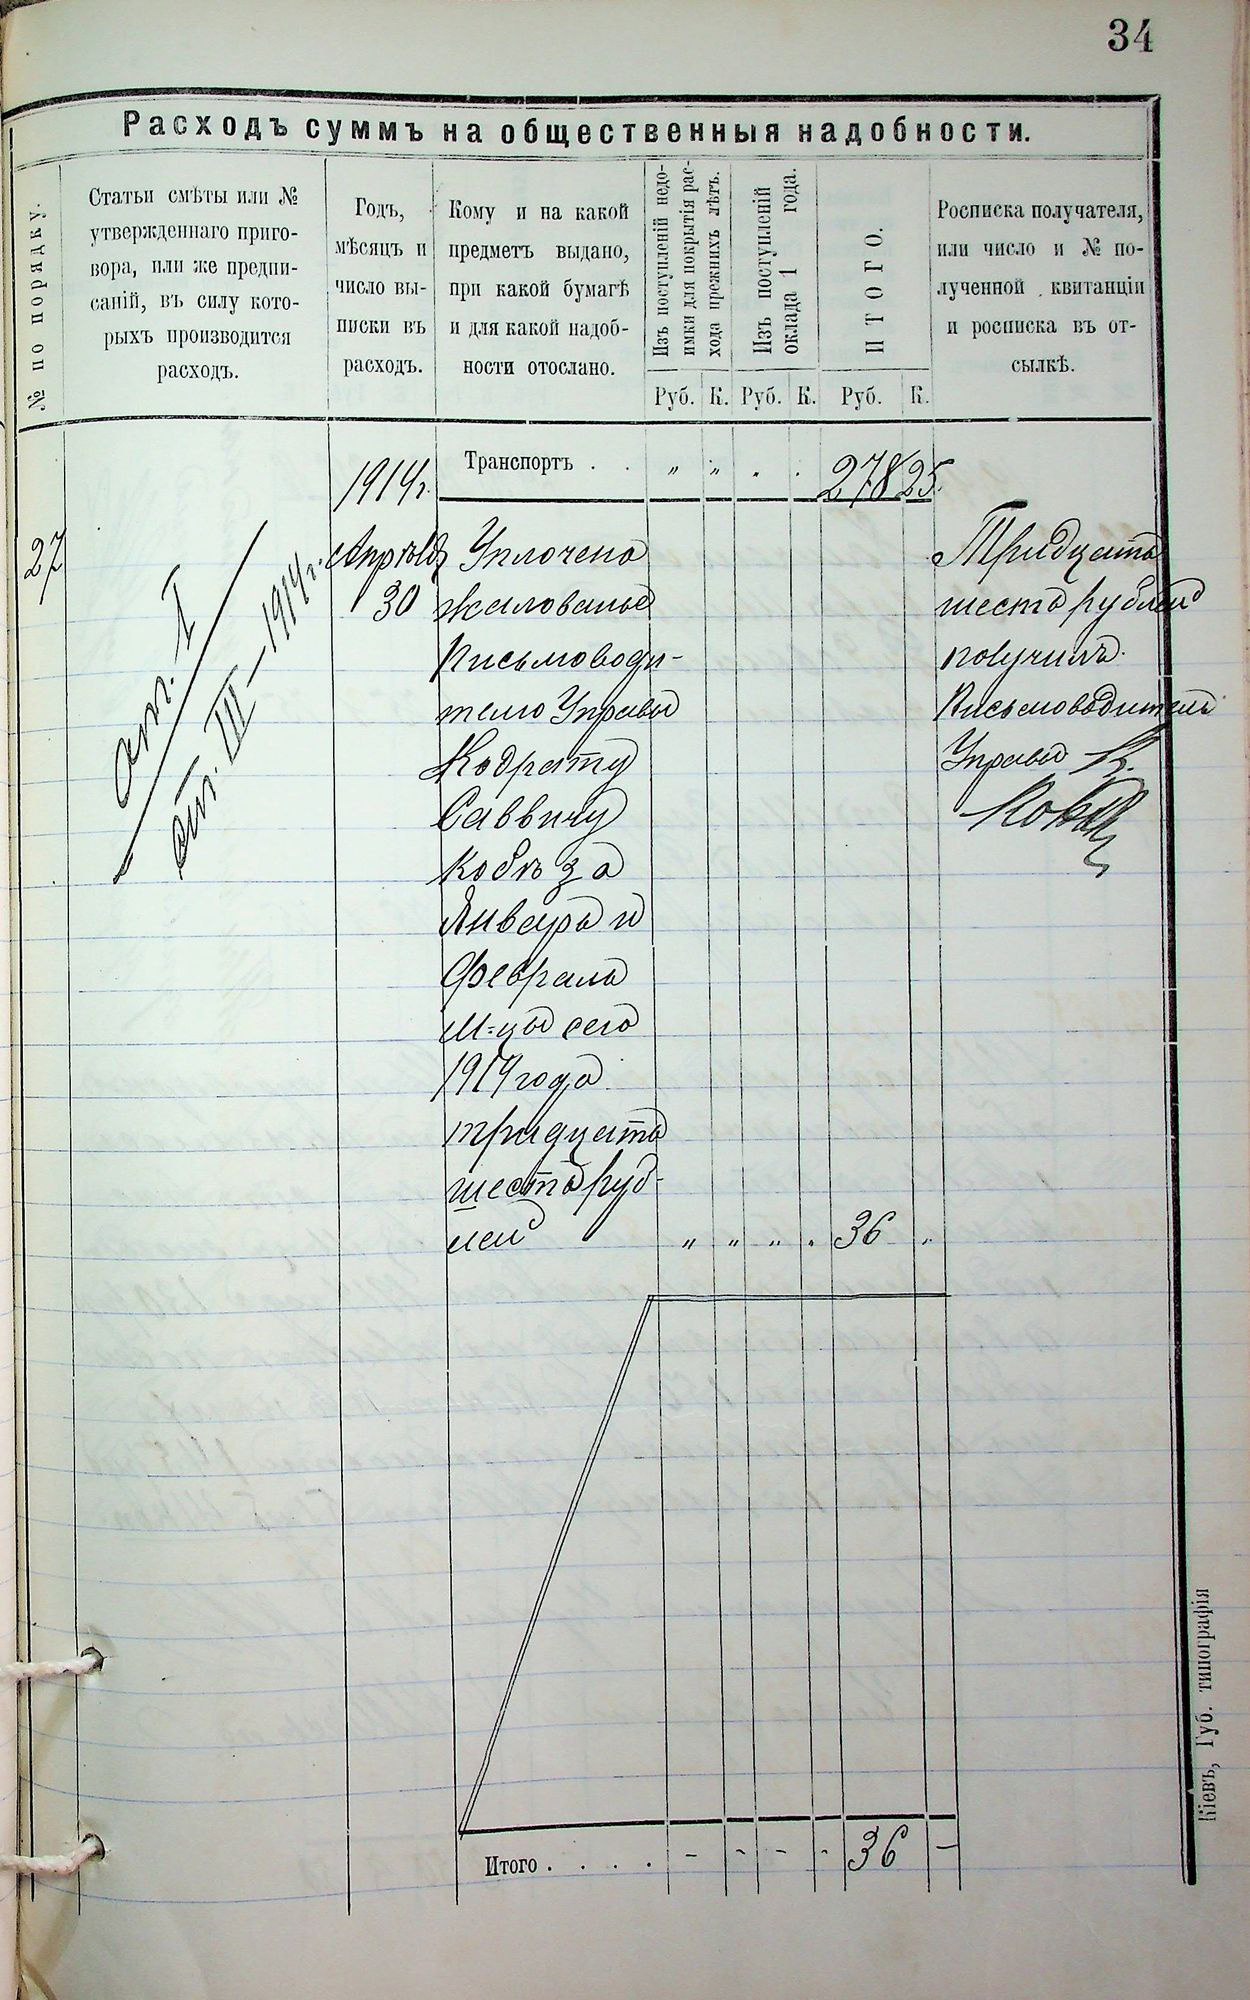 34
Расходъ суммъ на общественныя надобности.
№ по порядку.
Статьи смѣты или №
утвержденнаго приго-
вора, или же предпи-
саній, въ силу кото-
рыхъ производится
расходъ.
Годъ,
мѣсяцъ и
число вы-
писки въ
расходъ.
Кому и на какой
предметъ выдано,
при какой бумагѣ
и для какой надоб-
ности отослано.
Изъ поступленій недо-
имки для покрытія рас-
хода прежнихъ лѣтъ.
Изъ поступленій
оклада 1 года.
ИТОГО.
Росписка получателя,
или число и № по-
лученной квитанціи
и росписка въ от-
сылкѣ.
Руб. К. Руб. К. Руб. К.
1914г.
Транспортъ . . „ „ . . 278 25.
27
ст. I
ст. III-1914г.
Апрѣля
30
Уплочено
жалованье
Письмоводи-
телю Управы
Кодрату
Саввичу
Кобѣ за
Январь и
Февраль
м-цы сего
1914 года
тридцать
шесть руб-
лей „ „ „ . 36 „
Тридцать
шесть рублей
получилъ.
Письмоводитель
Управы К.
Итого . . . . - - - - 36 -
Кіевъ, Губ. типографія